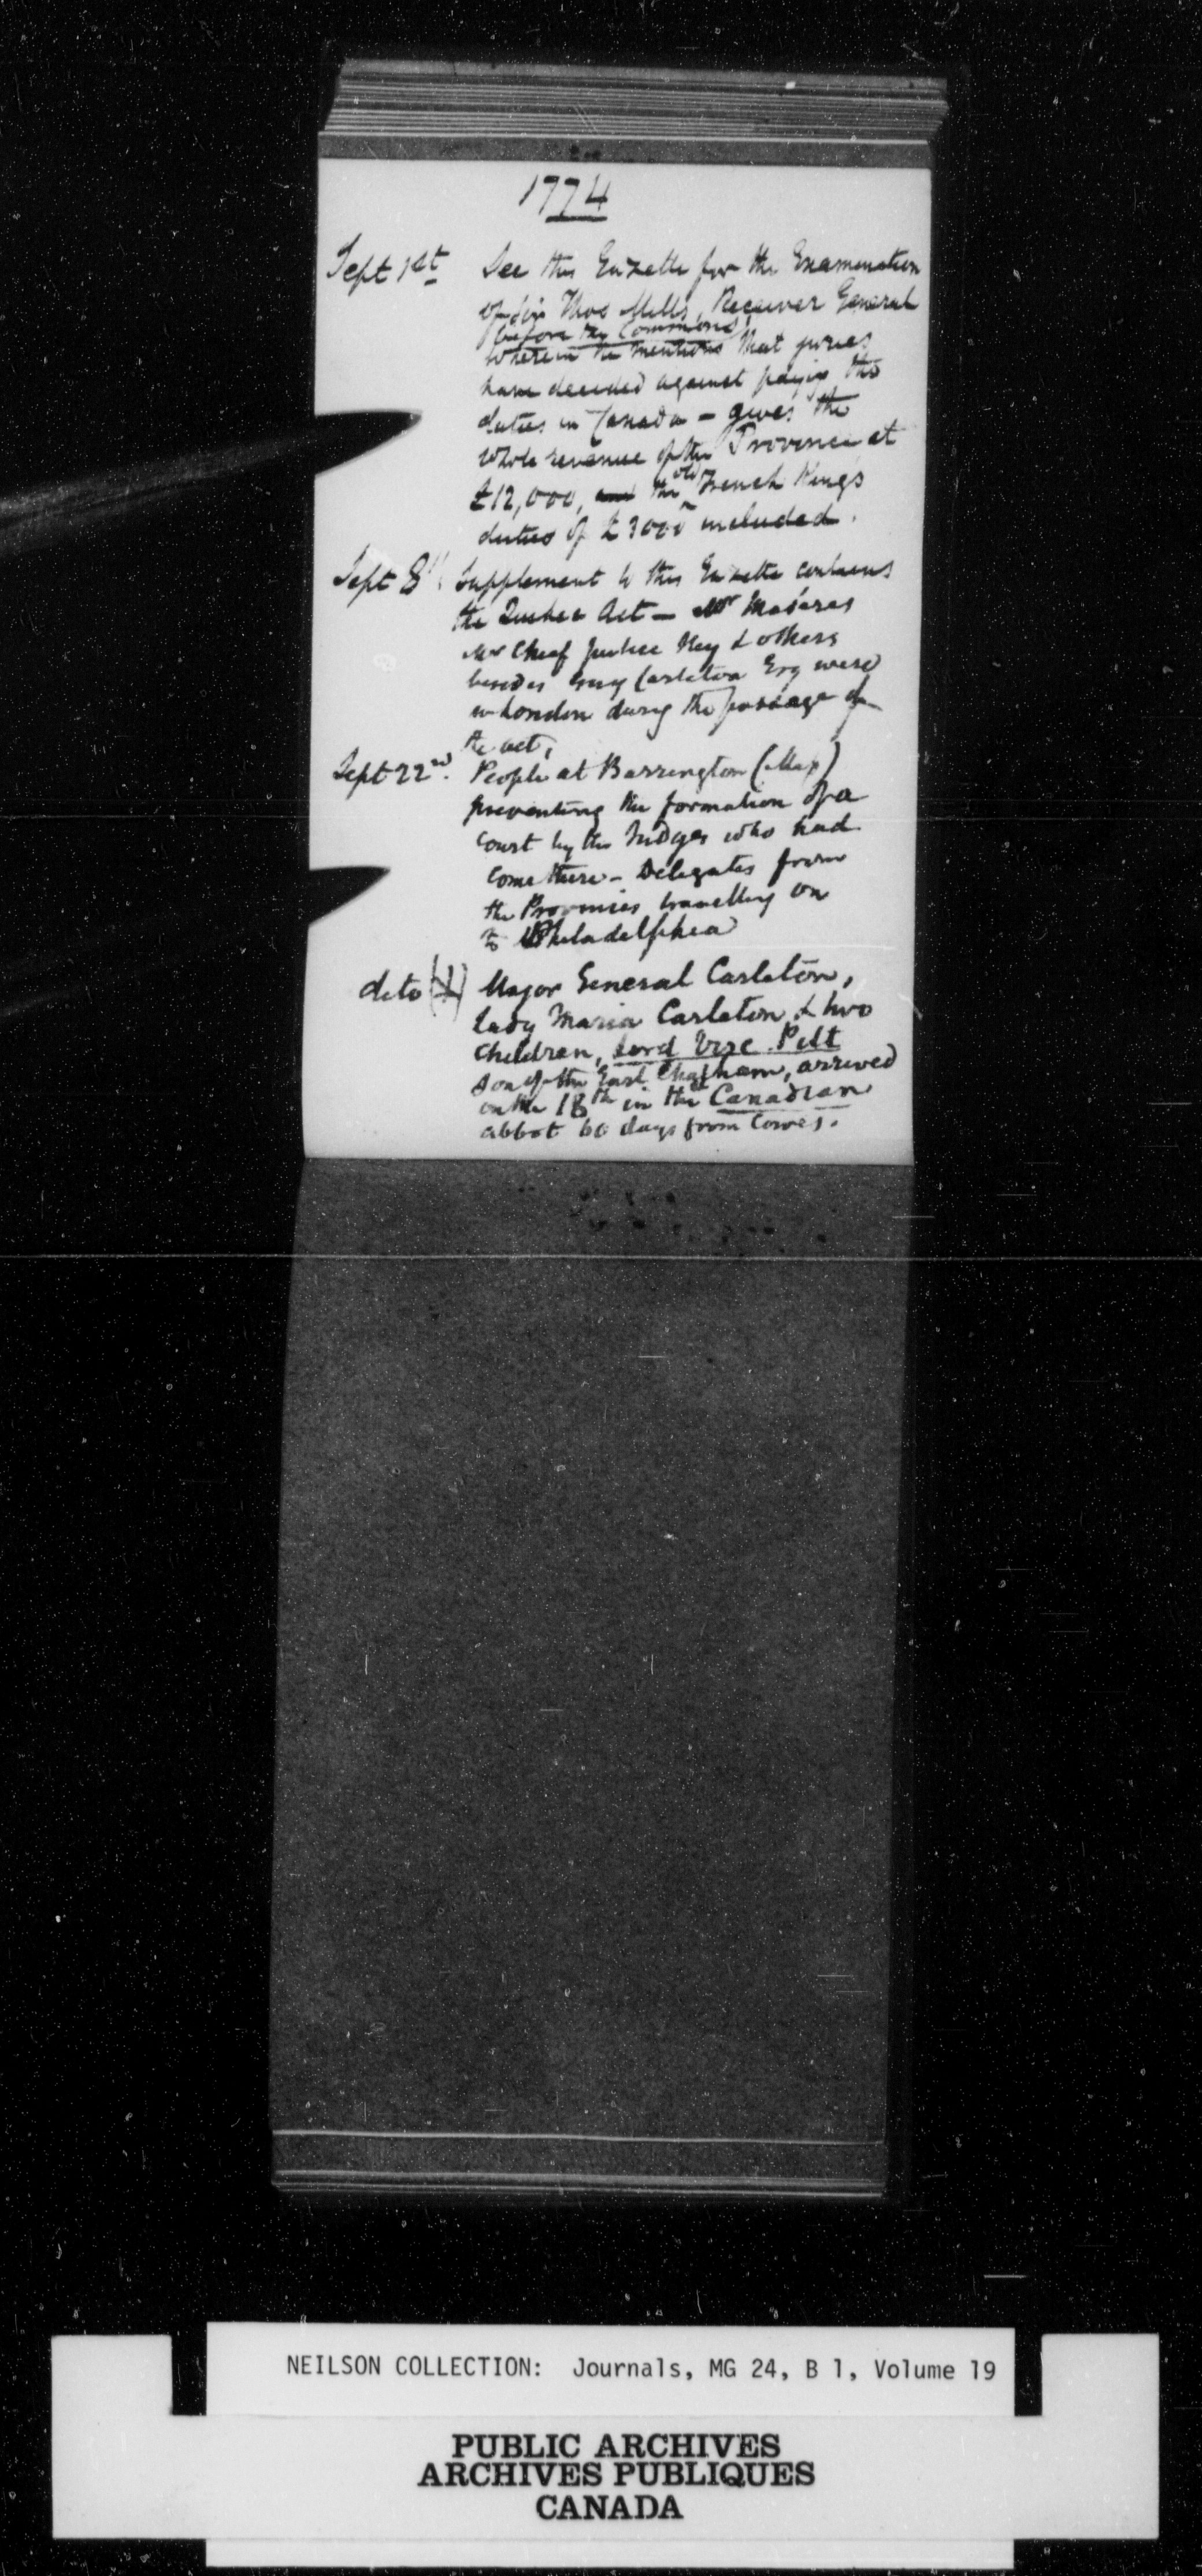 1774
Sept 1st See this Gazette for the Examination
of Sir Thos Mills, Receiver General
before the Commons,
wherein he mentions that juries
have decided against paying the
duties in Canada - gives the
whole revenue of the Province at
£12,000, and the old French Kings
duties of £3000 included.
Sept 8th Supplement to this Gazette contains
the Quebec Act - Mr Maseres
Mr Chief Justice Hey & others
besides Guy Carleton Esq were
in London during the passage of
the act,
Sept 22nd. People at Barrington (Mass)
preventing the formation of a
court by the Judges who had
come there - Delegates from
the Provinces travelling on
to Philadelphia
dito Major General Carleton,
Lady Maria Carleton, & two
children, Lord Visc. Pitt
son of the Earl Chatham, arrived
on the 18th in the Canadian
abbot 60 days from Cowes.
NEILSON COLLECTION: Journals, MG 24, B 1, Volume 19
PUBLIC ARCHIVES
ARCHIVES PUBLIQUES
CANADA